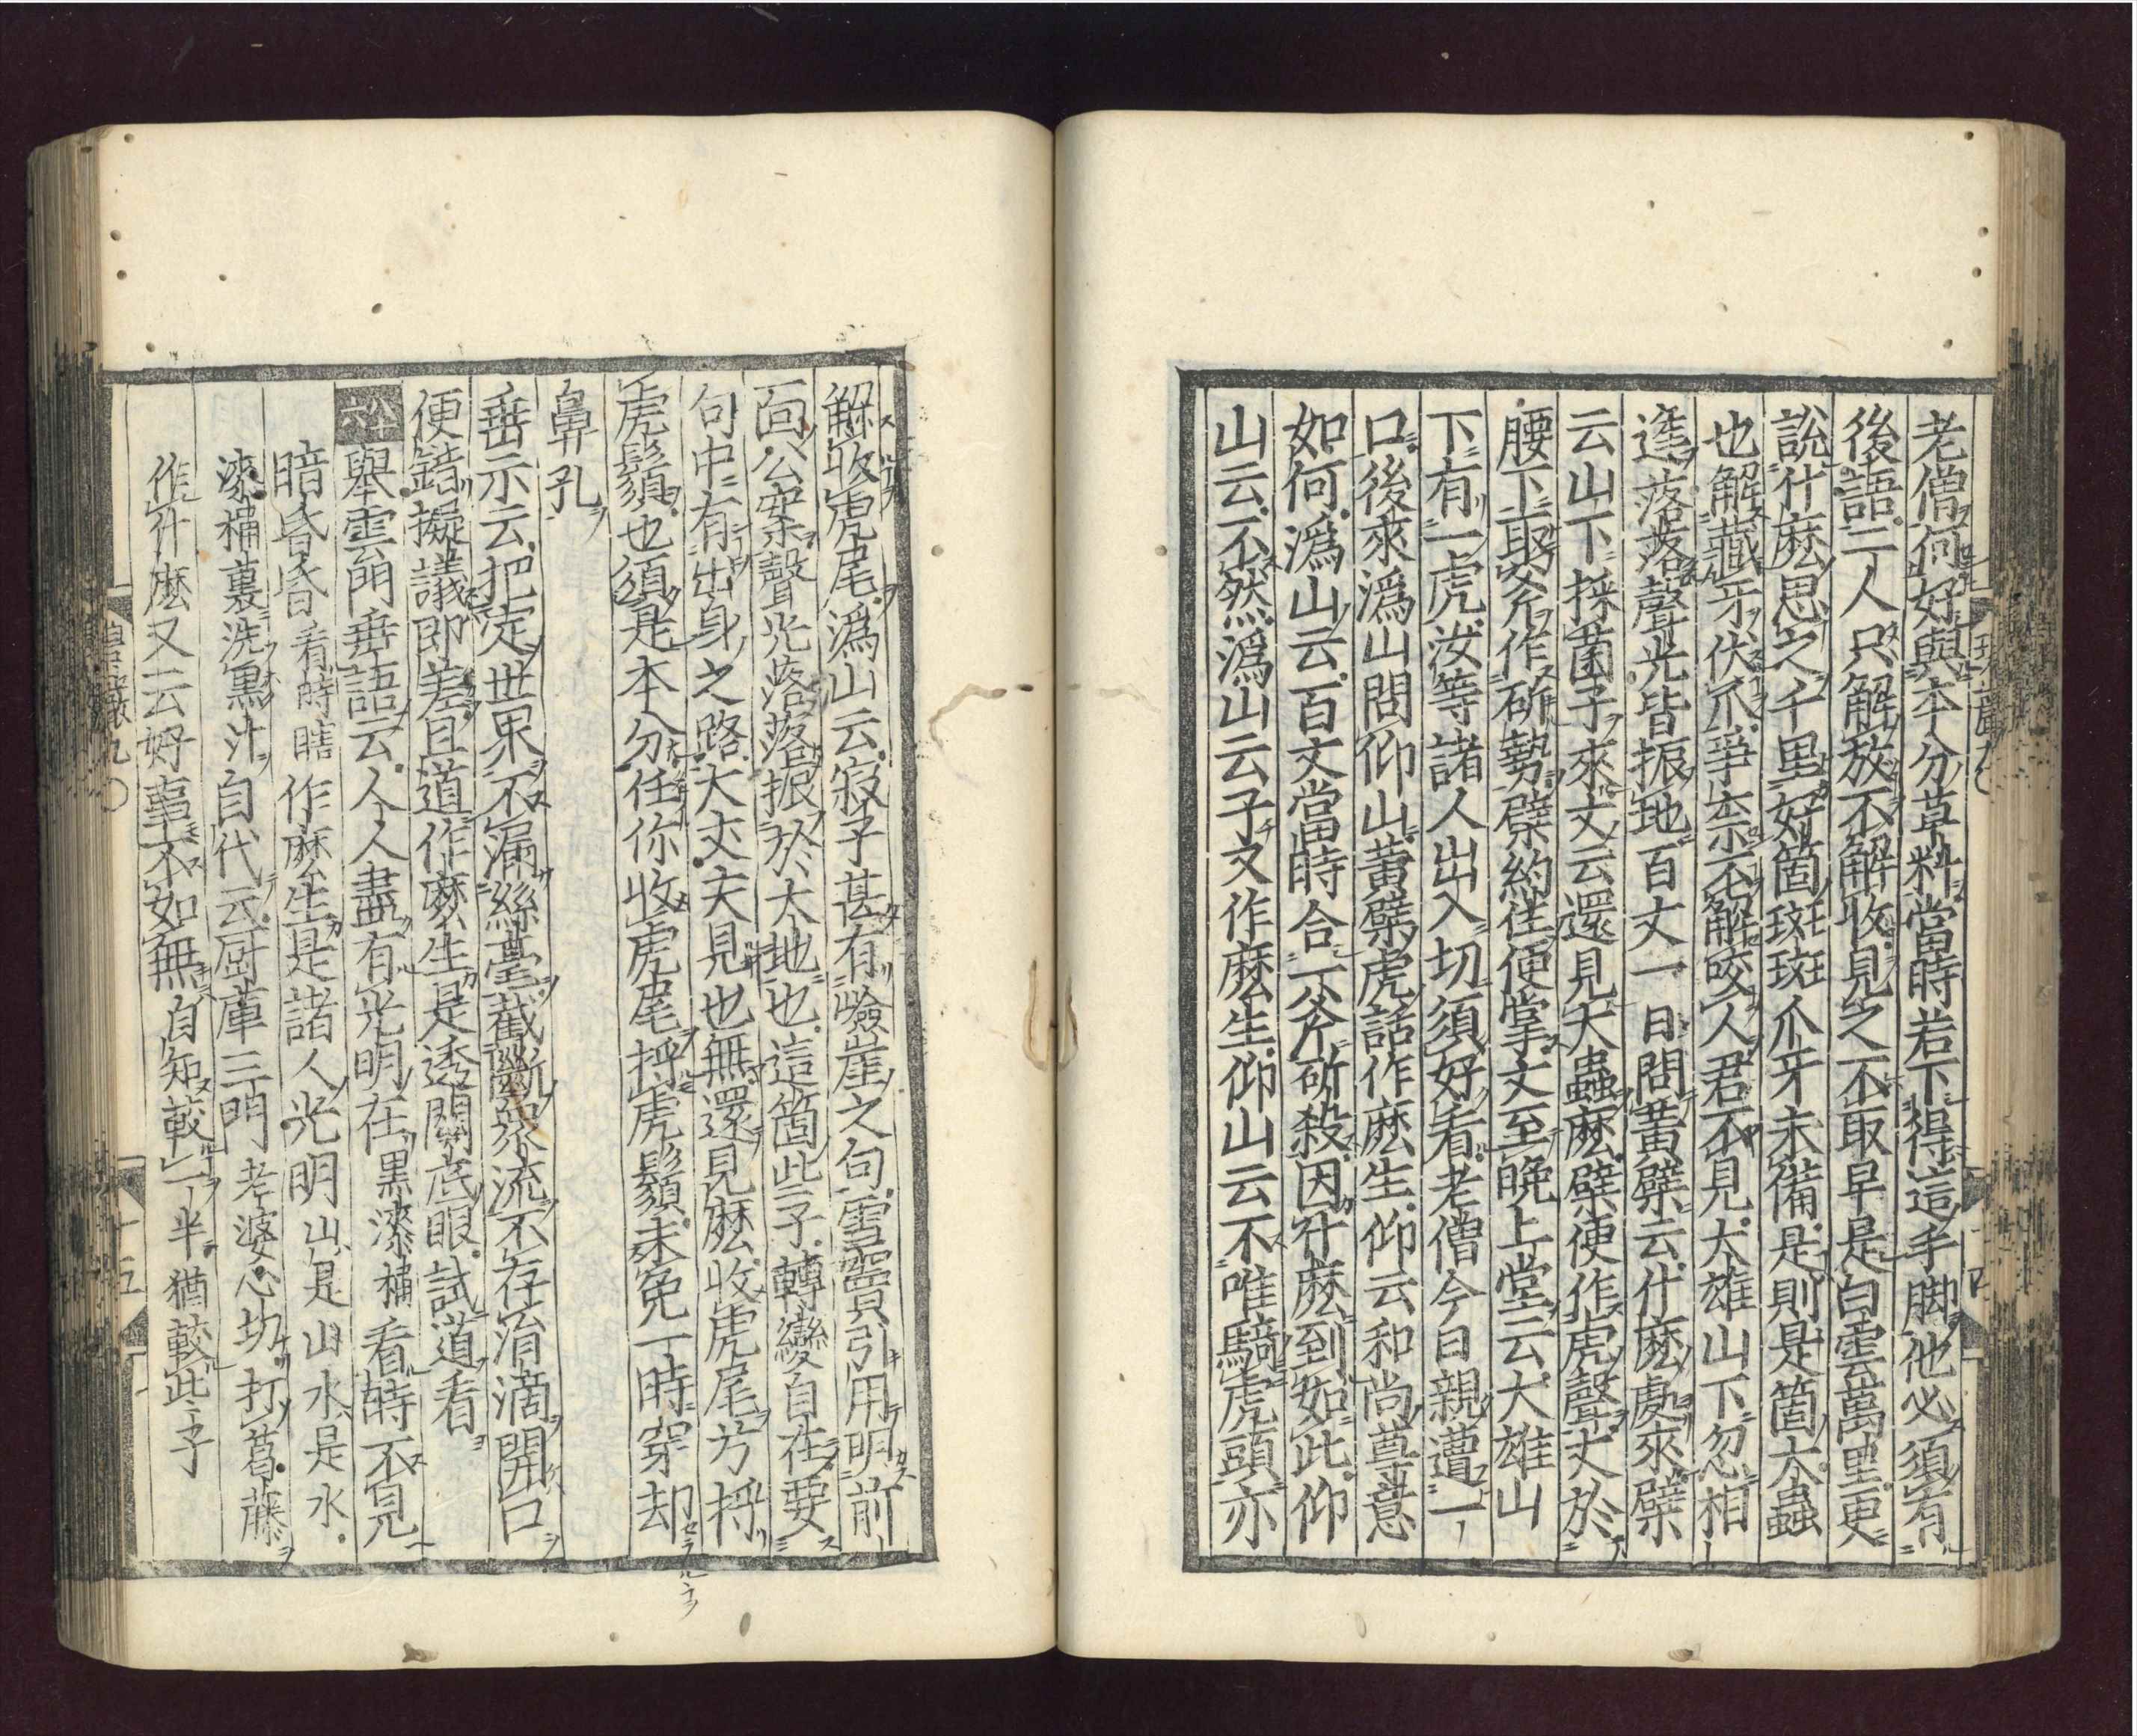 老僧何好與本分草料當時若下得這手脚他必須有
後語二人只解放不解收見之不取早是白雲萬里更
說什麽思之千里好箇斑斑爪牙未備是則是箇大蟲
也解藏牙伏爪爭柰不解咬人君不見大雄山下忽相
逢落落聲光皆振地百丈一日問黃檗云什麽處來檗
云山下採菌子來丈云還見大蟲麽檗便作虎聲丈於
腰下取斧作斫勢檗約住便掌丈至晚上堂云大雄山
下有一虎汝等諸人出入切須好看老僧今日親遭一
口後來潙山問仰山黃檗虎話作麽生仰云和尚尊意
如何潙山云百丈當時合一斧斫殺因什麽到如此仰
山云不然潙山云子又作麽生仰山云不唯騎虎頭亦
解收虎尾潙山云寂子甚有嶮崖之句雪竇引用明前
面公案聲光落落振於大地也這箇些子轉變自在要
句中有出身之路大丈夫見也無還見麽收虎尾方捋
虎鬚也須是本分任你收虎尾捋虎鬚未免一時穿却
鼻孔
垂示云把定世界不漏絲毫截斷衆流不存涓滴開口
便錯擬議即差且道作麽生是透關底眼試道看
八十六 舉雲門垂語云人人盡有光明在黑漆桶看時不見
暗昏昏看時瞎作麽生是諸人光明山是山水是水
漆桶裏洗黑汁自代云厨庫三門老婆心切打葛藤
作什麽又云好事不如無自知較一半猶較些子
碧巖九
十五